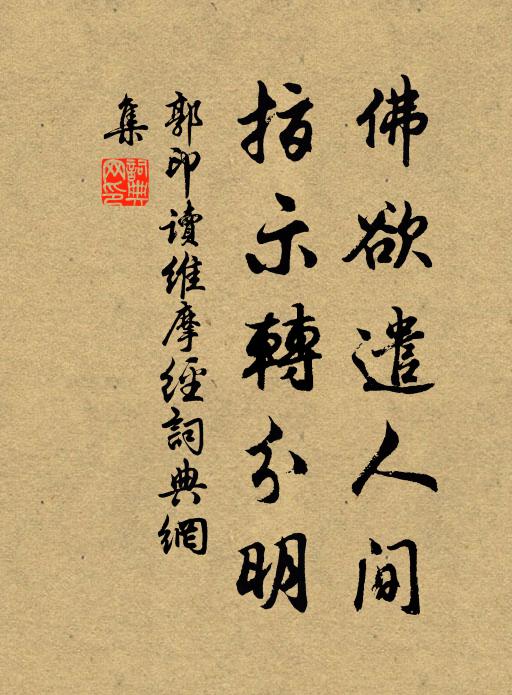 佛欲遣人间
指示轉分明
郭印讀維摩經詞典網
集
詞典网印